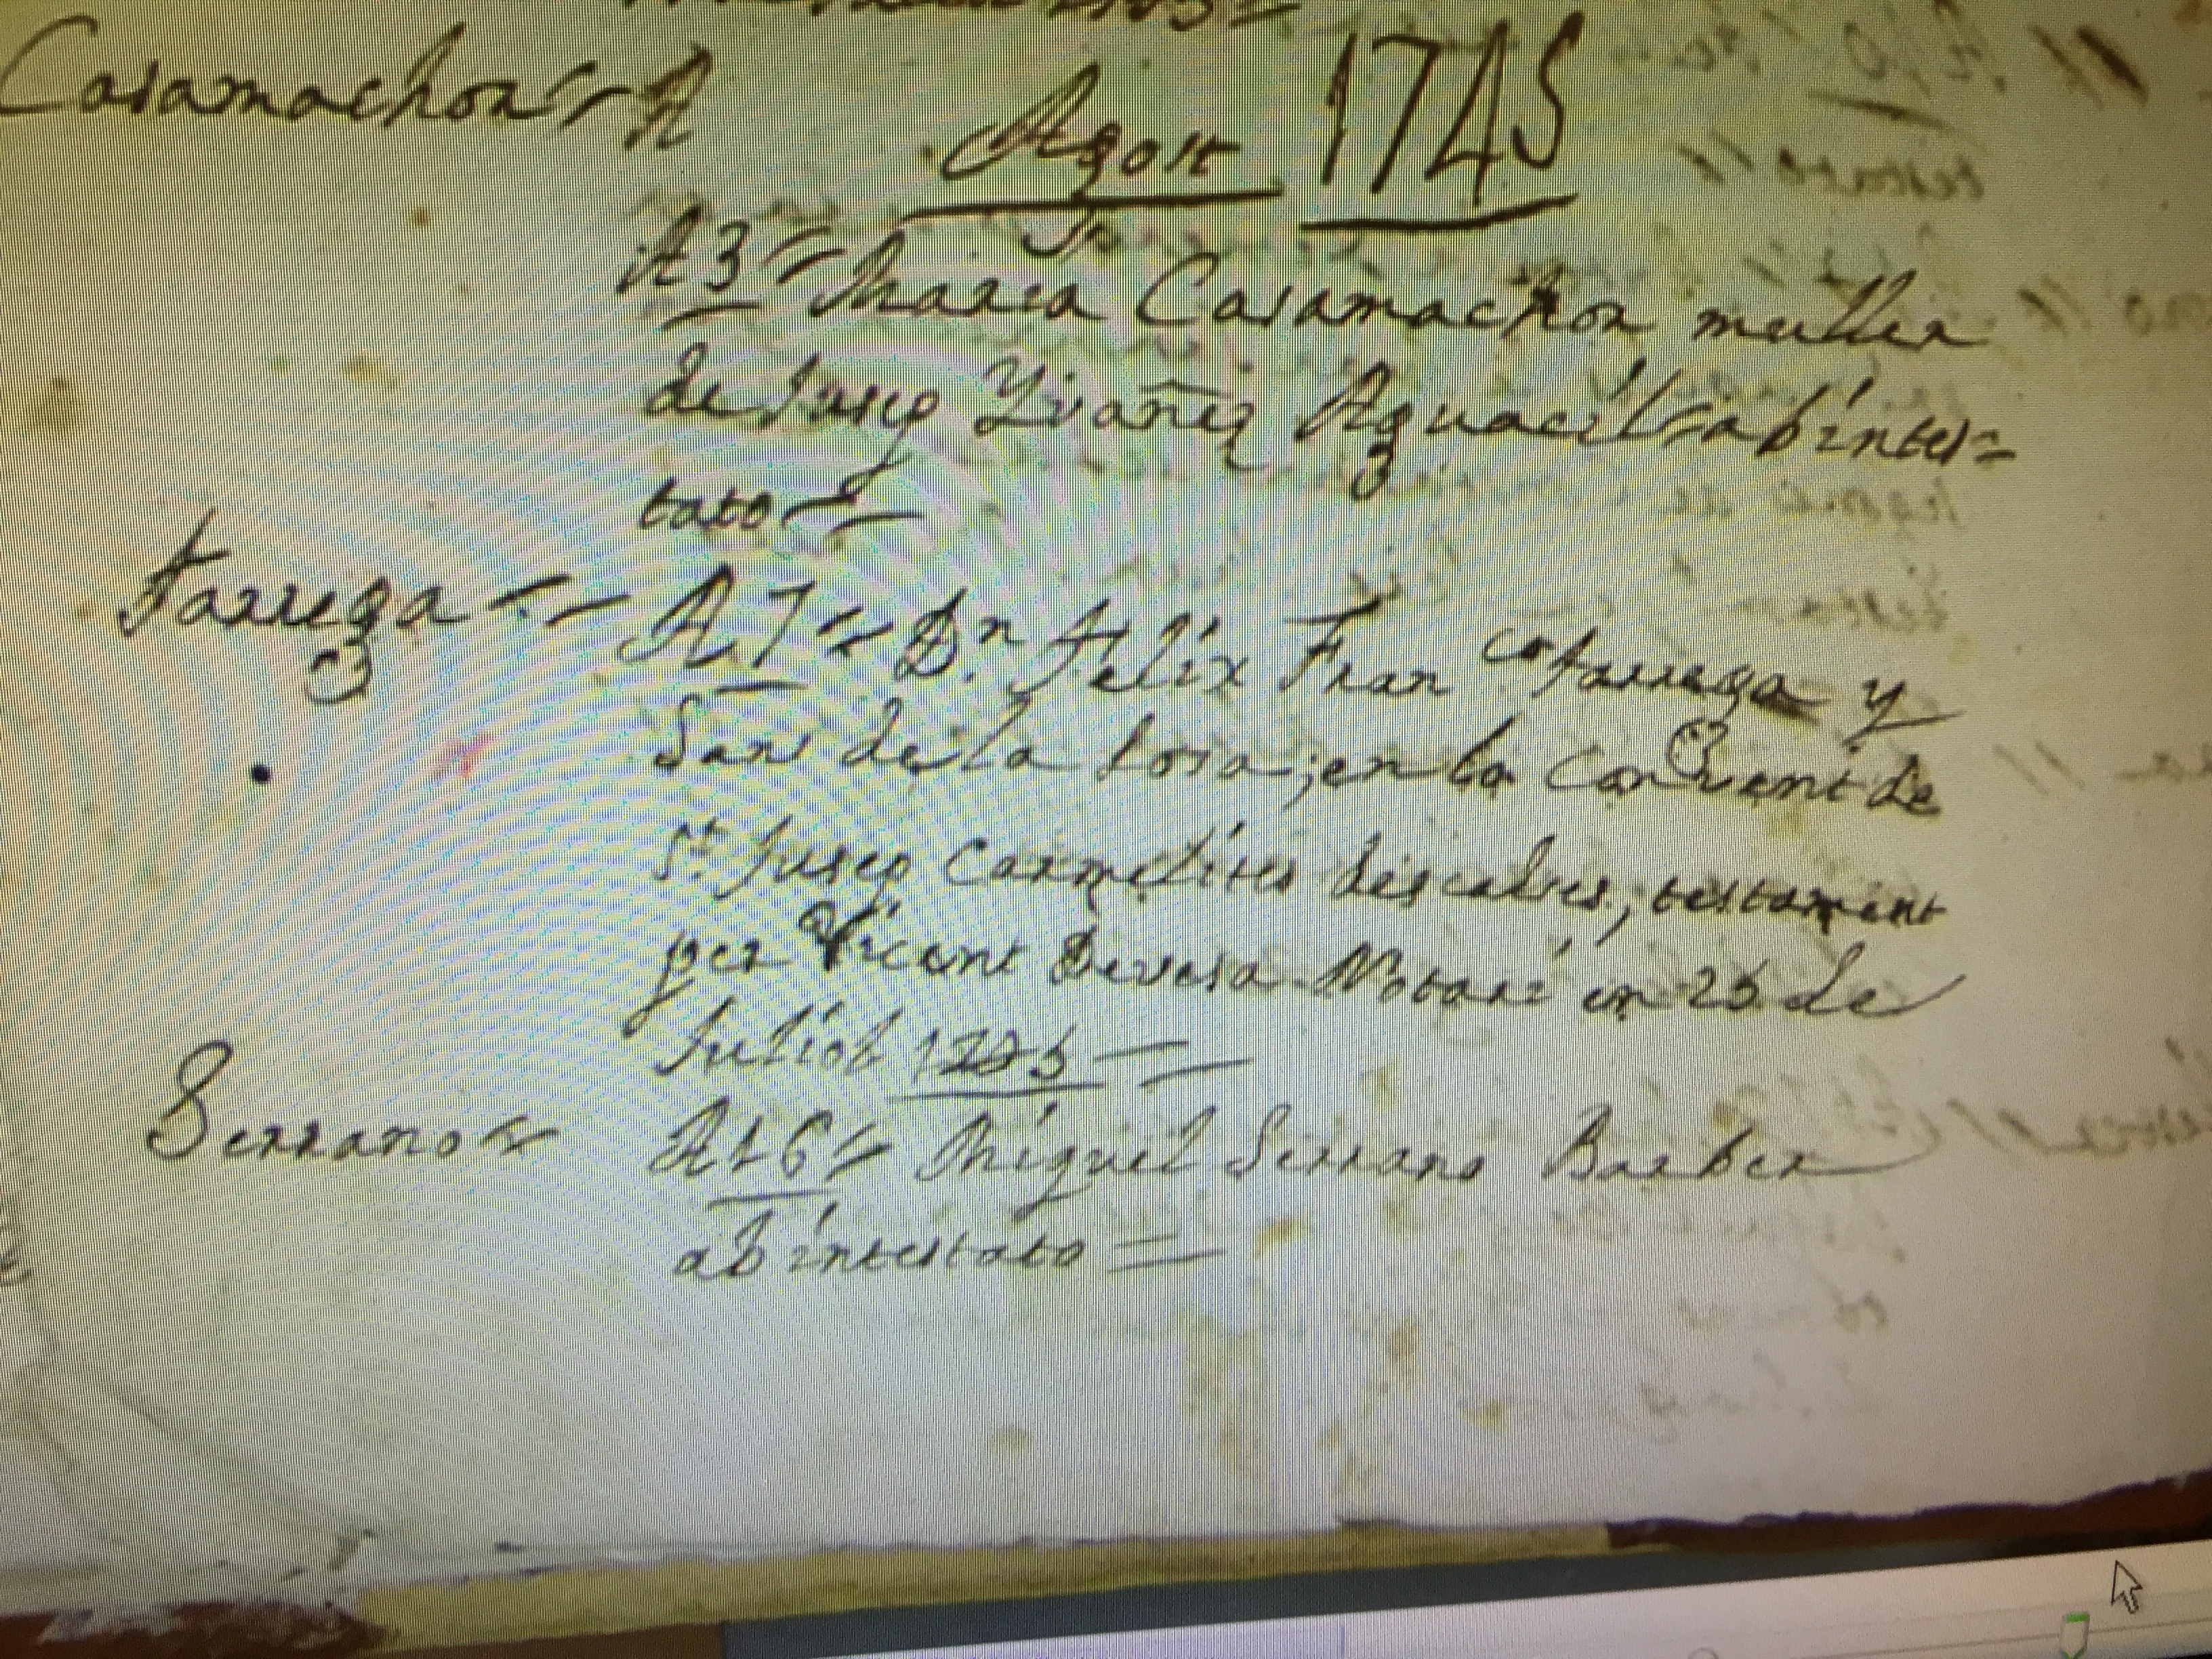 Casamachor A
Agost 1745
A 3 Maria Casamachor muller
de Jusep Yvañez Aguacil abintes=
tato
Tarrega A 7 Dn. Felix Franco Tarrega y
Sans de la Losa; en lo Convent de
St. Jusep Carmelites descalses, testament
per Vicent Devesa Notari en 25 de
Juliol
Serrano A 16 Miguel Serrano Barber
abintestato